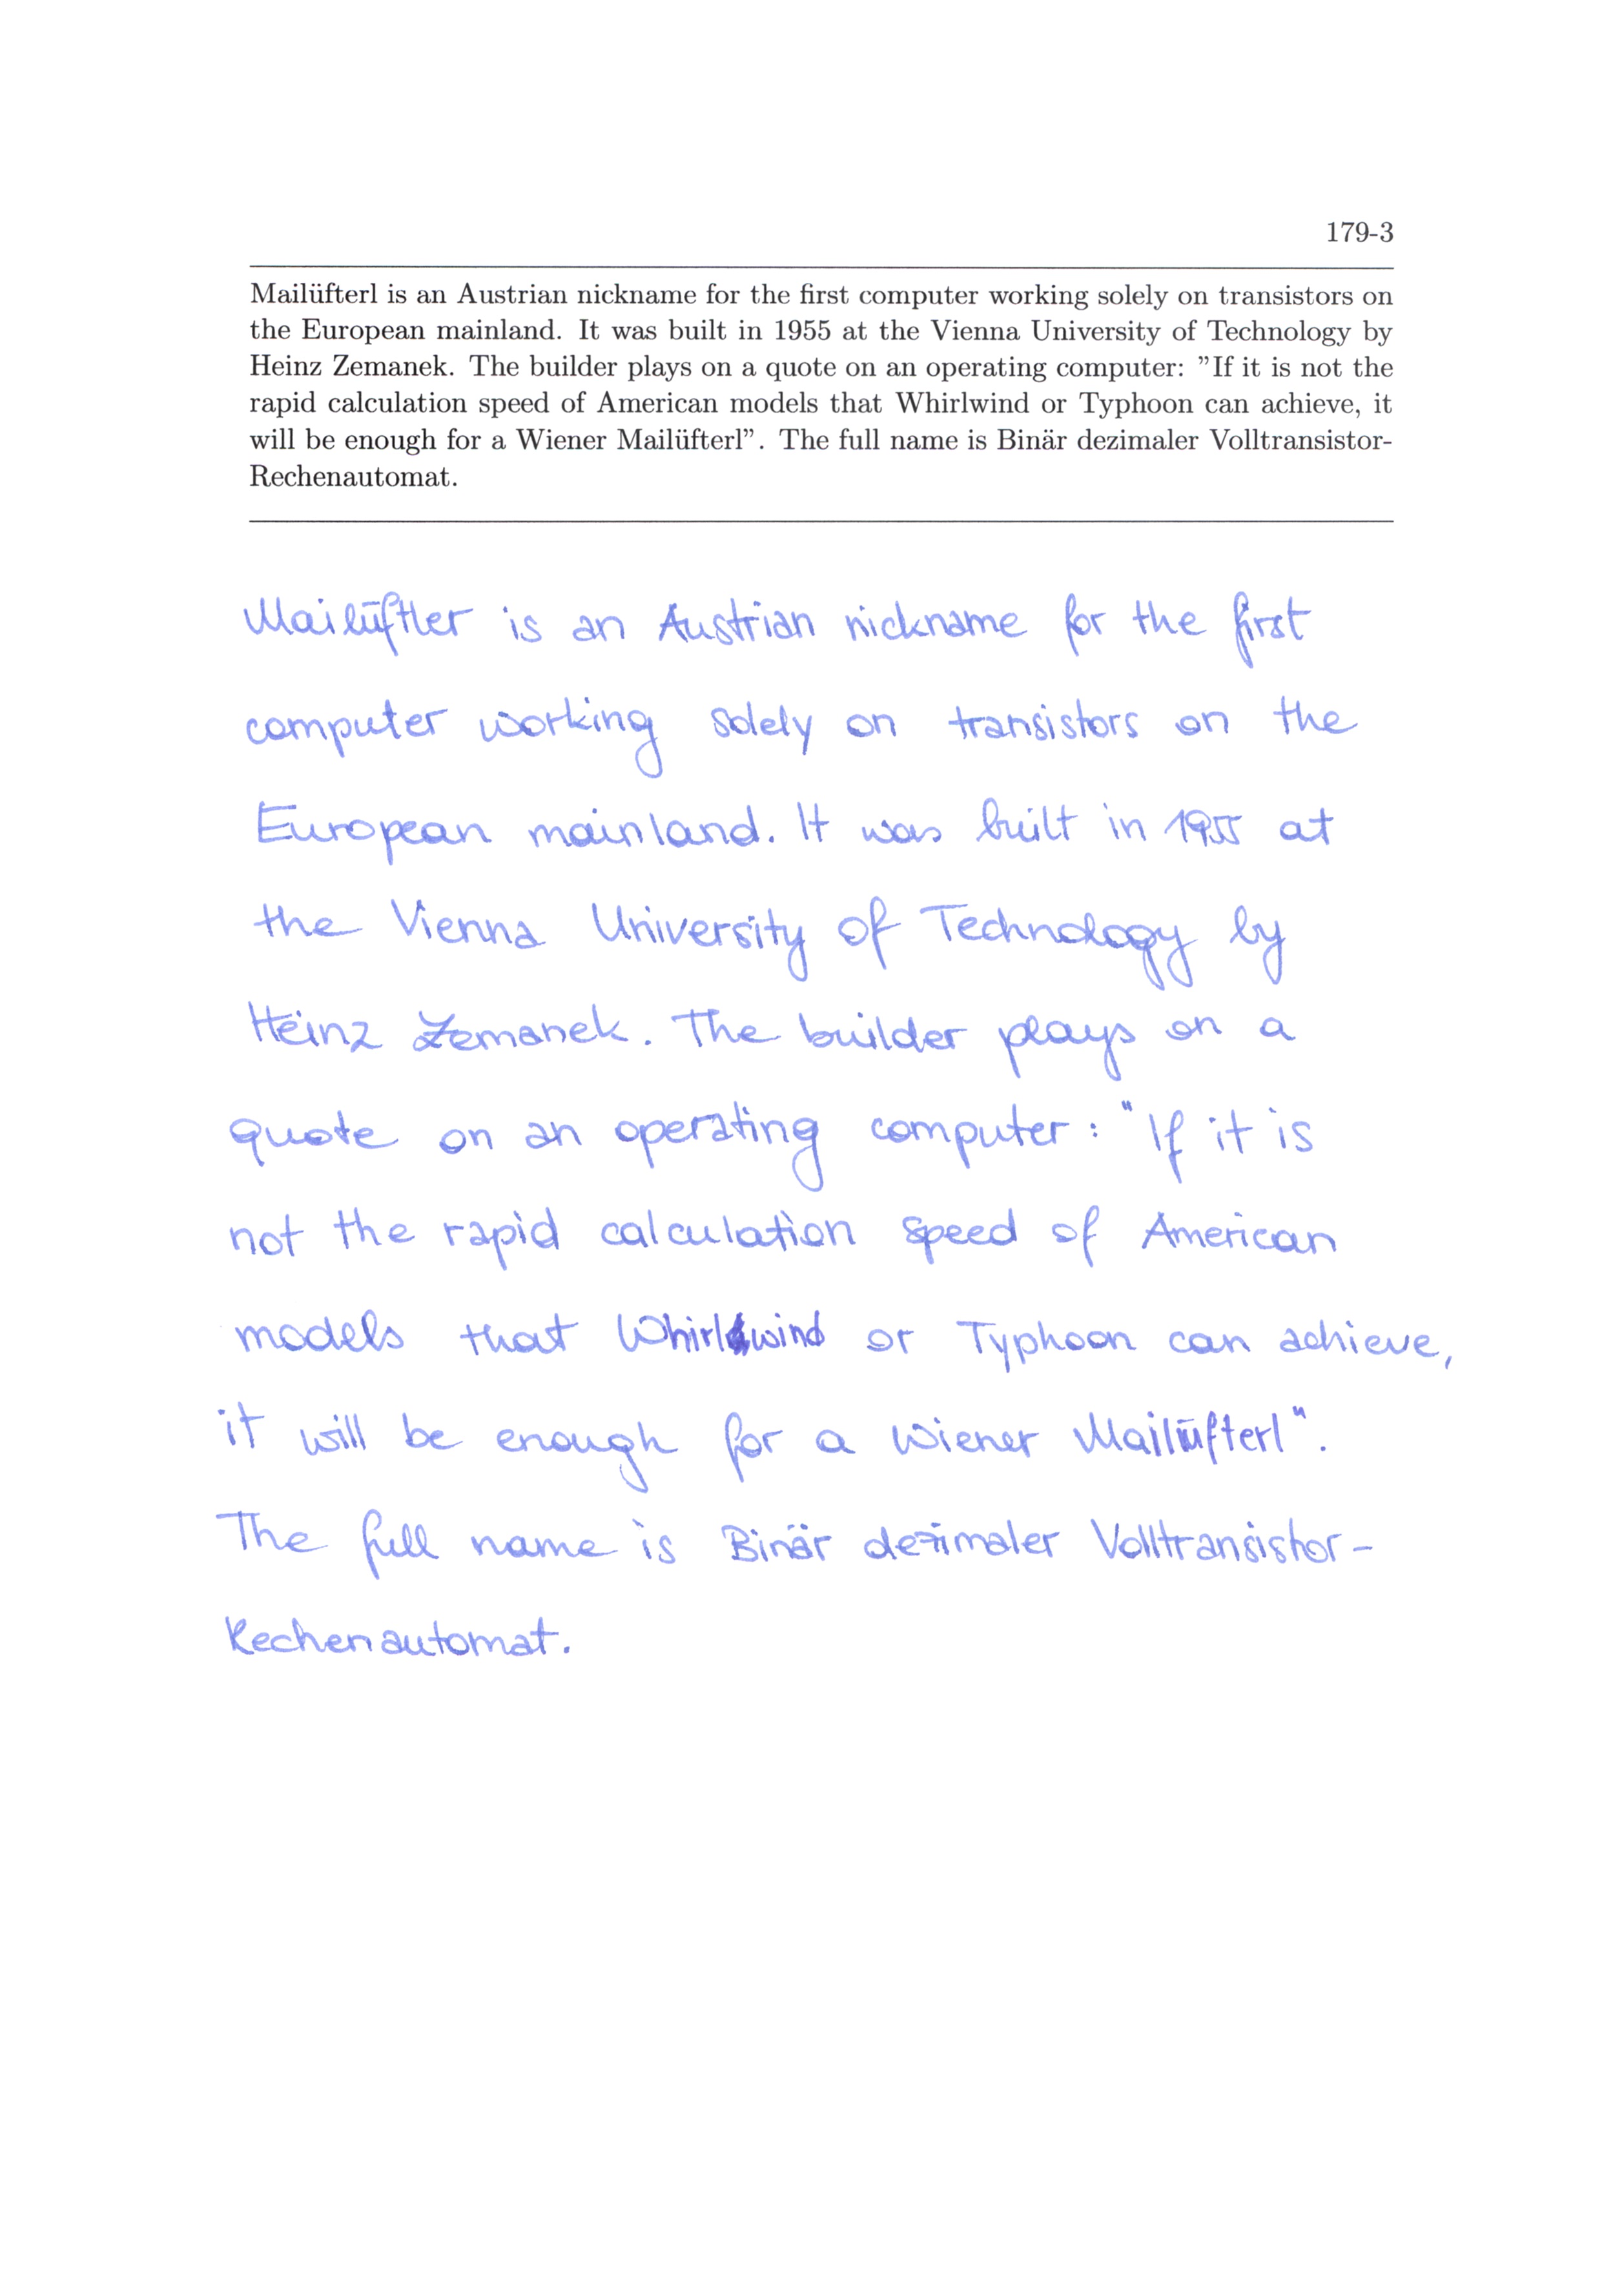 179-3
Mailüfterl is an Austrian nickname for the first computer working solely on transistors on
the European mainland. It was built in 1955 at the Vienna University of Technology by
Heinz Zemanek. The builder plays on a quote on an operating computer: ”If it is not the
rapid calculation speed of American models that Whirlwind or Typhoon can achieve, it
will be enough for a Wiener Mailüfterl”. The full name is Binär dezimaler Volltransistor-
Rechenautomat.
Mailüftler is an Austrian nickname for the first
computer working solely on transistors on the
European mainland. It was built in 1955 at
the Vienna University of Technology by
Heinz Zemanek. The builder plays on a
quote on an operating computer: "If it is
not the rapid calculation speed of American
models that Whirlwind or Typhoon can achieve,
it will be enough for a Wiener Mailüfterl".
The full name is Binär dezimaler Volltransistor-
Rechenautomat.